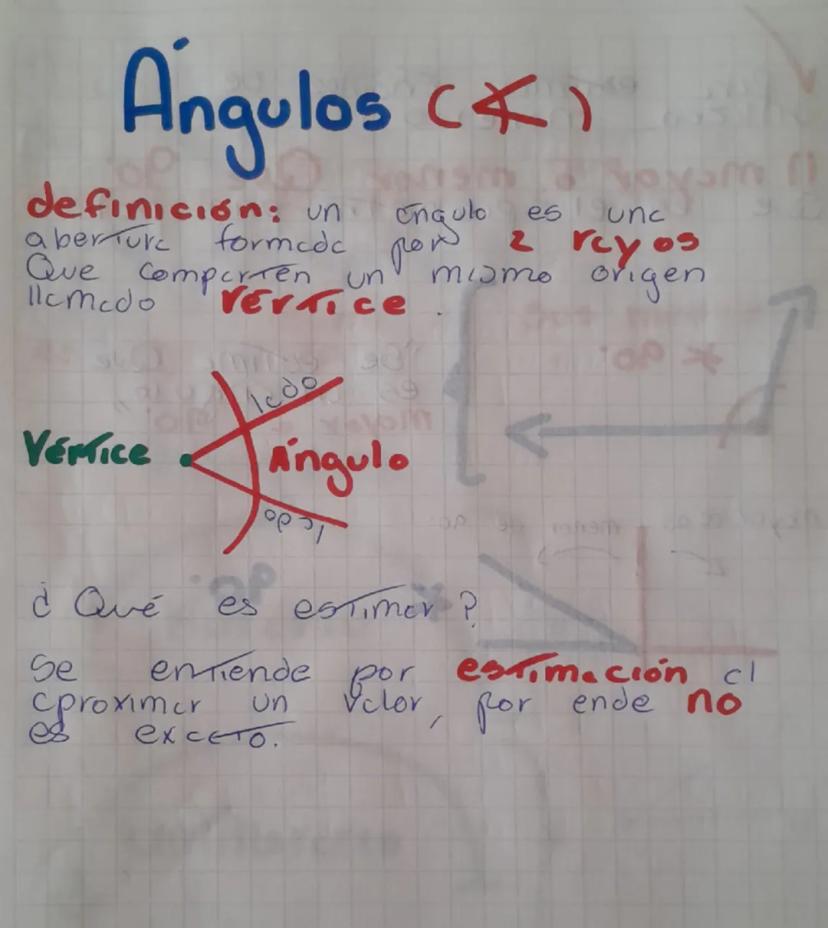 Ángulos (∢)
definición: un ángulo es una
abertura formada por 2 rayos
Que comparten un mismo origen
llamado vértice.
lado
Vértice Ángulo
lado
¿Qué es estimar?
Se entiende por estimación al
aproximar un valor, por ende no
es exacto.